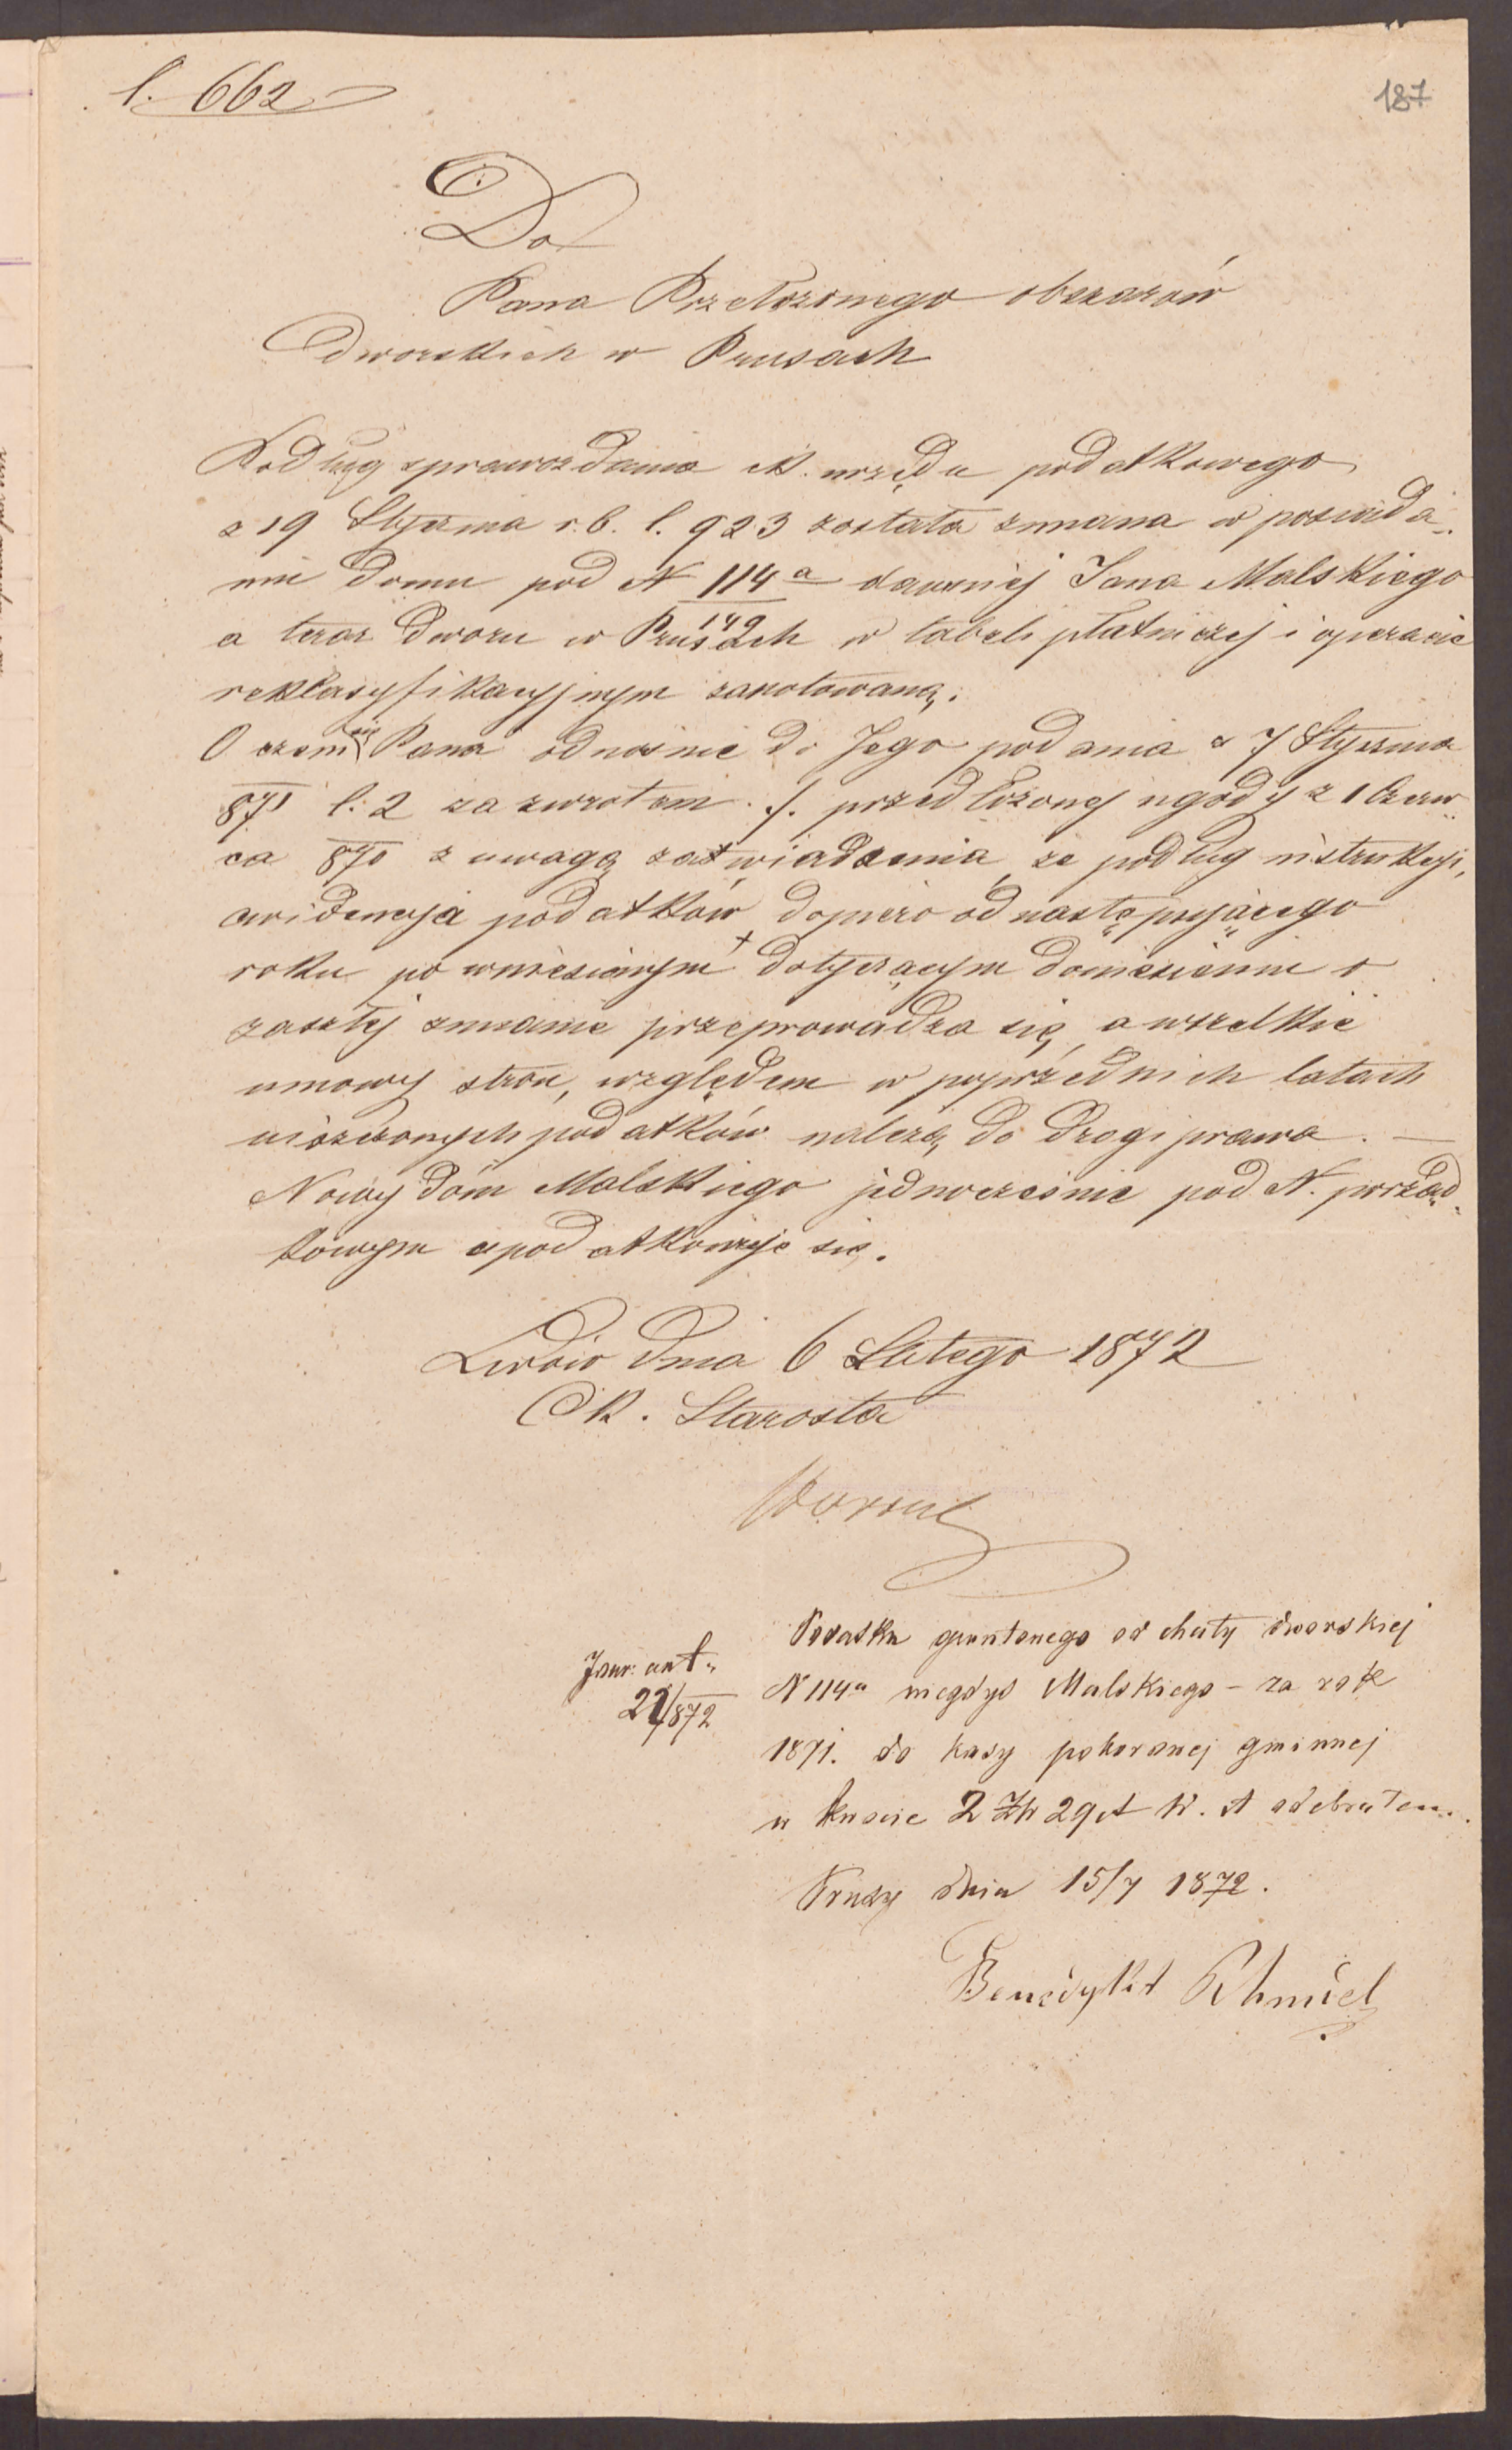 l. 662
187
Do
Pana Przełożonego obszarów
dworskich w Prusach
Podług sprawozdania ck. urzędu podatkowego
z 19 Stycznia r. b. l. 923 została zmiana w posiada-
niu domu pod N 114a/149 dawniej Jana Malskiego
a teraz dworu w Prusach w tabeli płatniczej i operacie
reklasyfikacyjnym zanotowaną.
O czem się Pana odnośnie do Jego podania z 7 Stycznia
871 l. 2 za zwrotem ./. przedłożonej ugody z 1 Czerw-
ca 870 z uwagą zawiadamia, że podług instrukcyi,
ewidencya podatków dopiero od następującego
roku po wniesionym dotyczącym doniesieniu o
zaszłej zmianie przeprowadza się, a wszelkie
umowy stron, względem w poprzednich latach
uiszczonych podatków należą do drogi prawa. —
Nowy dóm Malskiego jednocześnie pod N. porząd-
kowym opodatkowuje się.
Lwów dnia 6 Lutego 1872
Ck. Starosta
Podatku gruntonego od chaty dworskiej
N 114a niegdyś Malskiego – za rok
1871. do kasy poborowej gminnej
w kwocie 2 Zł 29 ct W. A odebrałem.
Prusy dnia 15/7 1872.
Benedykt Chmiel
22/872